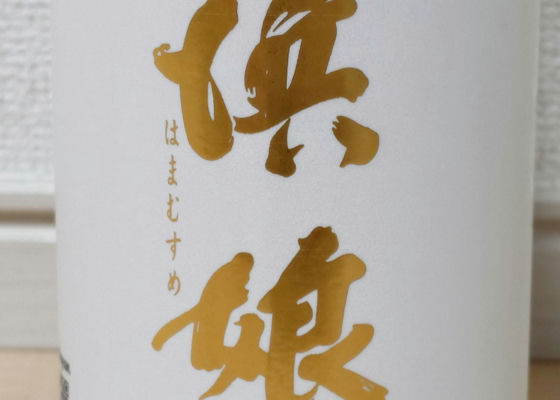 浜娘
はまむすめ